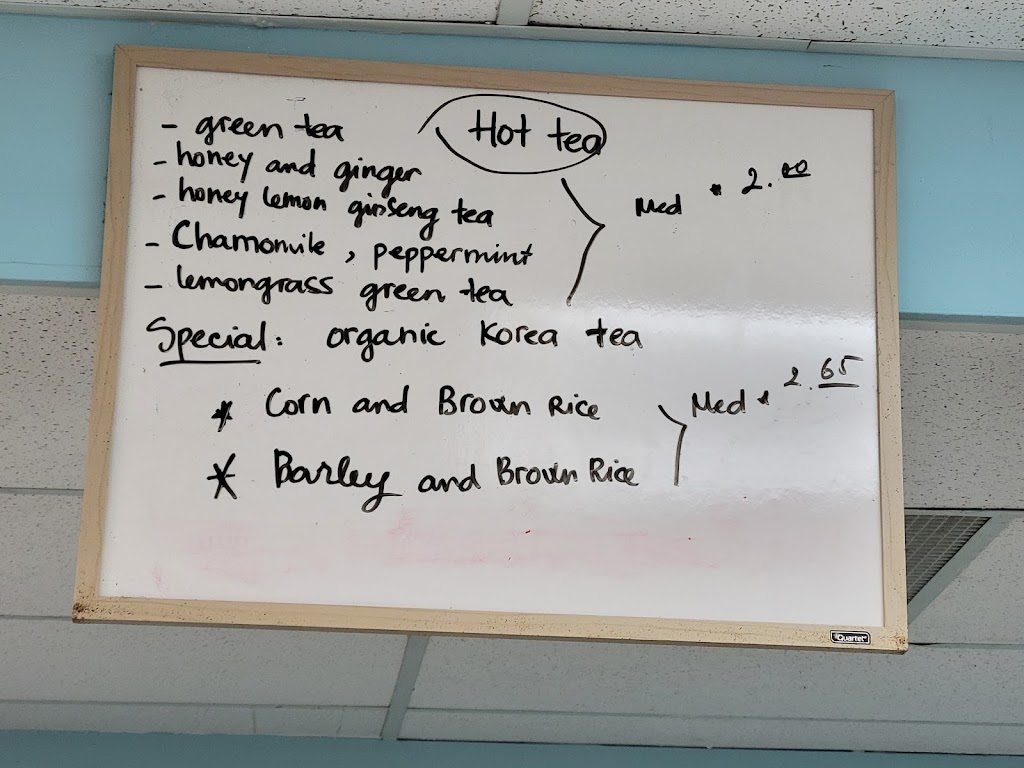 Hot tea
- green tea
- honey and ginger
- honey lemon ginseng tea
- Chamomile, peppermint
- lemongrass green tea
Med * 2.00
Special: organic Korea tea
* Corn and Brown Rice
* Barley and Brown Rice
Med * 2.65
Quartet